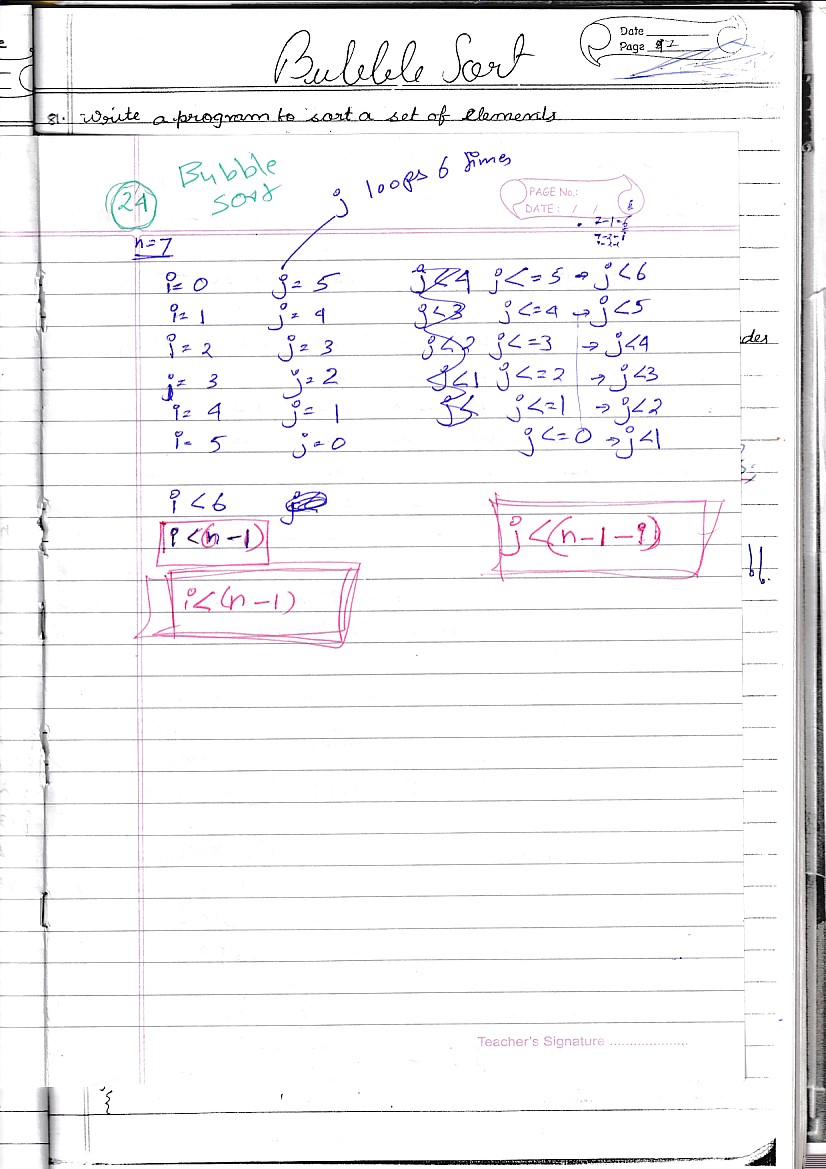 Date
Page
Bubble Sort
81. Write a program to sort a set of elements
24 Bubble sort
j loops 6 times
PAGE No.:
DATE: / /
n=7
i=0 j=5 j<4 j<=5 → j<6
i=1 j=4 j<3 j<=4 → j<5
i=2 j=3 j<2 j<=3 → j<4
i=3 j=2 j<1 j<=2 → j<3
i=4 j=1 j< j<=1 → j<2
i=5 j=0 j<=0 → j<1
i<6
i<(n-1) j<(n-1-i)
i<(n-1)
Teacher's Signature
}